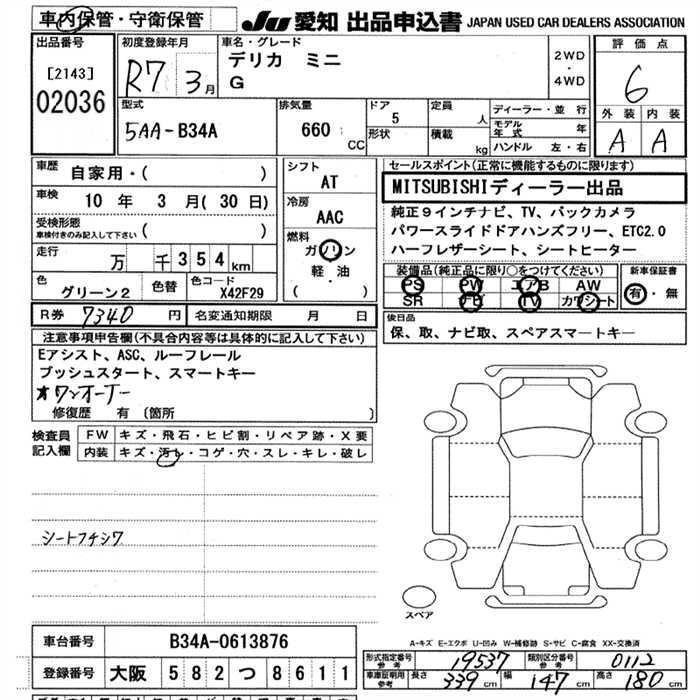 車内保管・守衛保管 JU 愛知 出品申込書 JAPAN USED CAR DEALERS ASSOCIATION
出品番号
[2143]
02036
初度登録年月
R7 3月
車名・グレード
デリカ ミニ
G
2WD
・
4WD
評価点
6
外装 内装
A A
型式
5AA-B34A
排気量
660 CC
ドア
5
形状
定員
人
積載
kg
ディーラー・並行
モデル年式 年
ハンドル 左・右
車歴
自家用・( )
車検
10年 3月( 30日)
受検形態
車検付きのみ記入して下さい ( )
走行
万 千 3 5 4 km
色
グリーン2
色替
色コード
X42F29
シフト
AT
冷房
AAC
燃料
ガソリン
軽・油
( )
セールスポイント(正常に機能するものに限ります)
MITSUBISHIディーラー出品
純正9インチナビ、TV、バックカメラ
パワースライドドアハンズフリー、ETC2.0
ハーフレザーシート、シートヒーター
装備品(純正品に限り○をつけてください)
PS PW エアB AW
SR ナビ TV カワシート
新車保証書
有・無
R券 7340 円 名変通知期限 月 日
後日品
保、取、ナビ取、スペアスマートキー
注意事項申告欄(不具合内容等は具体的に記入して下さい)
Eアシスト、ASC、ルーフレール
プッシュスタート、スマートキー
オワンオーナー
修復歴 有 〔箇所 〕
検査員
記入欄
FW キズ・飛石・ヒビ割・リペア跡・X要
内装 キズ・汚レ・コゲ・穴・スレ・キレ・破レ
シートフチシワ
スペア
A-キズ E-エクボ U-凹み W-補修跡 S-サビ C-腐食 XX-交換済
車台番号 B34A-0613876
登録番号 大阪 5 8 2 つ 8 6 1 1
形式指定番号
参考
19537
類別区分番号
参考
0112
車庫証明用
参考
長さ 339 cm 幅 147 cm 高さ 180 cm